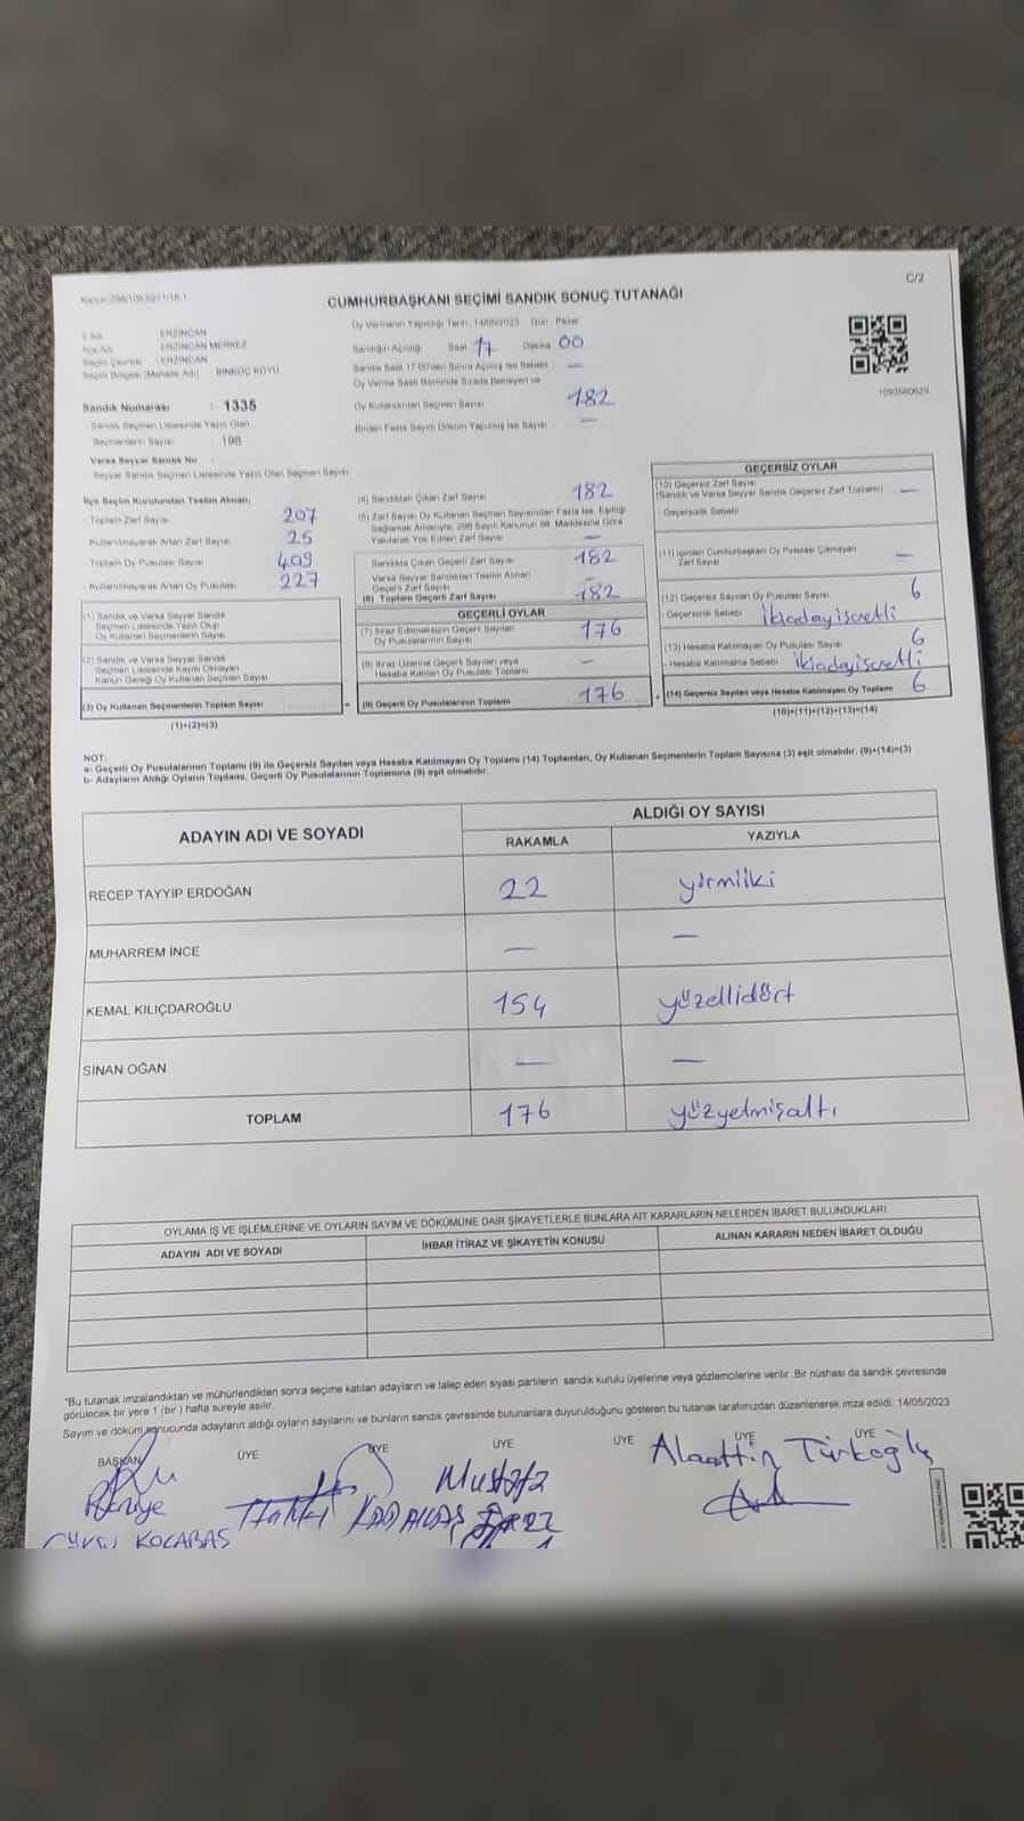 C/2
CUMHURBAŞKANI SEÇİMİ SANDIK SONUÇ TUTANAĞI
İli Adı : ERZİNCAN
İlçe Adı : ERZİNCAN MERKEZ
Seçim Çevresi : ERZİNCAN
Seçim Bölgesi (Mahalle Adı) : BİNKOÇ KÖYÜ
Sandık Numarası : 1335
Sandık Seçmen Listesinde Yazılı Olan
Seçmenlerin Sayısı : 198
Varsa Seyyar Sandık No
Seyyar Sandık Seçmen Listesinde Yazılı Olan Seçmen Sayısı
Oy Vermenin Yapıldığı Tarih : 14/05/2023 Gün : Pazar
Sandığın Açılışı Saat 17 Dakika 00
Sandık Saat 17.00'den Sonra Açılmış İse Sebebi —
Oy Verme Saati Bitiminde Sırada Bekleyen ve
Oy Kullandırılan Seçmen Sayısı 182
Birden Fazla Sayım Döküm Yapılmış İse Sayısı —
1093560629
İlçe Seçim Kurulundan Teslim Alınan;
- Toplam Zarf Sayısı 207
- Kullanılmayarak Artan Zarf Sayısı 25
- Toplam Oy Pusulası Sayısı 409
- Kullanılmayarak Artan Oy Pusulası 227
(1) Sandık ve Varsa Seyyar Sandık
Seçmen Listesinde Yazılı Olup
Oy Kullanan Seçmenlerin Sayısı
(2) Sandık ve Varsa Seyyar Sandık
Seçmen Listesinde Kayıtlı Olmayan
Kanun Gereği Oy Kullanan Seçmen Sayısı
(3) Oy Kullanan Seçmenlerin Toplam Sayısı
(1)+(2)=(3)
(4) Sandıktan Çıkan Zarf Sayısı 182
(5) Zarf Sayısı Oy Kullanan Seçmen Sayısından Fazla İse, Eşitliği
Sağlamak Amacıyla, 298 Sayılı Kanunun 98. Maddesine Göre
Yakılarak Yok Edilen Zarf Sayısı —
Sandıkta Çıkan Geçerli Zarf Sayısı 182
Varsa Seyyar Sandıktan Teslim Alınan
Geçerli Zarf Sayısı —
(6) Toplam Geçerli Zarf Sayısı 182
GEÇERLİ OYLAR
(7) İtiraz Edilmeksizin Geçerli Sayılan
Oy Pusulalarının Sayısı 176
(8) İtiraz Üzerine Geçerli Sayılan veya
Hesaba Katılan Oy Pusulası Toplamı —
(9) Geçerli Oy Pusulalarının Toplamı 176
GEÇERSİZ OYLAR
(10) Geçersiz Zarf Sayısı
(Sandık ve Varsa Seyyar Sandık Geçersiz Zarf Toplamı) —
- Geçersizlik Sebebi
(11) İçinden Cumhurbaşkanı Oy Pusulası Çıkmayan
Zarf Sayısı —
(12) Geçersiz Sayılan Oy Pusulası Sayısı 6
- Geçersizlik Sebebi ikiadayişaretli
(13) Hesaba Katılmayan Oy Pusulası Sayısı 6
- Hesaba Katılmama Sebebi ikiadayişaretli
(14) Geçersiz Sayılan veya Hesaba Katılmayan Oy Toplamı 6
(10)+(11)+(12)+(13)=(14)
NOT:
a- Geçerli Oy Pusulalarının Toplamı (9) ile Geçersiz Sayılan veya Hesaba Katılmayan Oy Toplamı (14) Toplamları, Oy Kullanan Seçmenlerin Toplam Sayısına (3) eşit olmalıdır. (9)+(14)=(3)
b- Adayların Aldığı Oyların Toplamı, Geçerli Oy Pusulalarının Toplamına (9) eşit olmalıdır.
ADAYIN ADI VE SOYADI
ALDIĞI OY SAYISI
RAKAMLA YAZIYLA
RECEP TAYYİP ERDOĞAN 22 yirmiiki
MUHARREM İNCE — —
KEMAL KILIÇDAROĞLU 154 yüzellidört
SİNAN OĞAN — —
TOPLAM 176 yüzyetmişaltı
OYLAMA İŞ VE İŞLEMLERİNE VE OYLARIN SAYIM VE DÖKÜMÜNE DAİR ŞİKAYETLERLE BUNLARA AİT KARARLARIN NELERDEN İBARET BULUNDUKLARI
ADAYIN ADI VE SOYADI İHBAR İTİRAZ VE ŞİKAYETİN KONUSU ALINAN KARARIN NEDEN İBARET OLDUĞU
*Bu tutanak imzalandıktan ve mühürlendikten sonra seçime katılan adayların ve talep eden siyasi partilerin sandık kurulu üyelerine veya gözlemcilerine verilir. Bir nüshası da sandık çevresinde
görülecek bir yere 1 (bir) hafta süreyle asılır.
Sayım ve döküm sonucunda adayların aldığı oyların sayılarını ve bunların sandık çevresinde bulunanlara duyurulduğunu gösteren bu tutanak tarafımızdan düzenlenerek imza edildi. 14/05/2023
BAŞKAN ÜYE ÜYE ÜYE ÜYE ÜYE ÜYE
Mustafa Alaattin Türkoğlu
Hakkı
KOCABAŞ